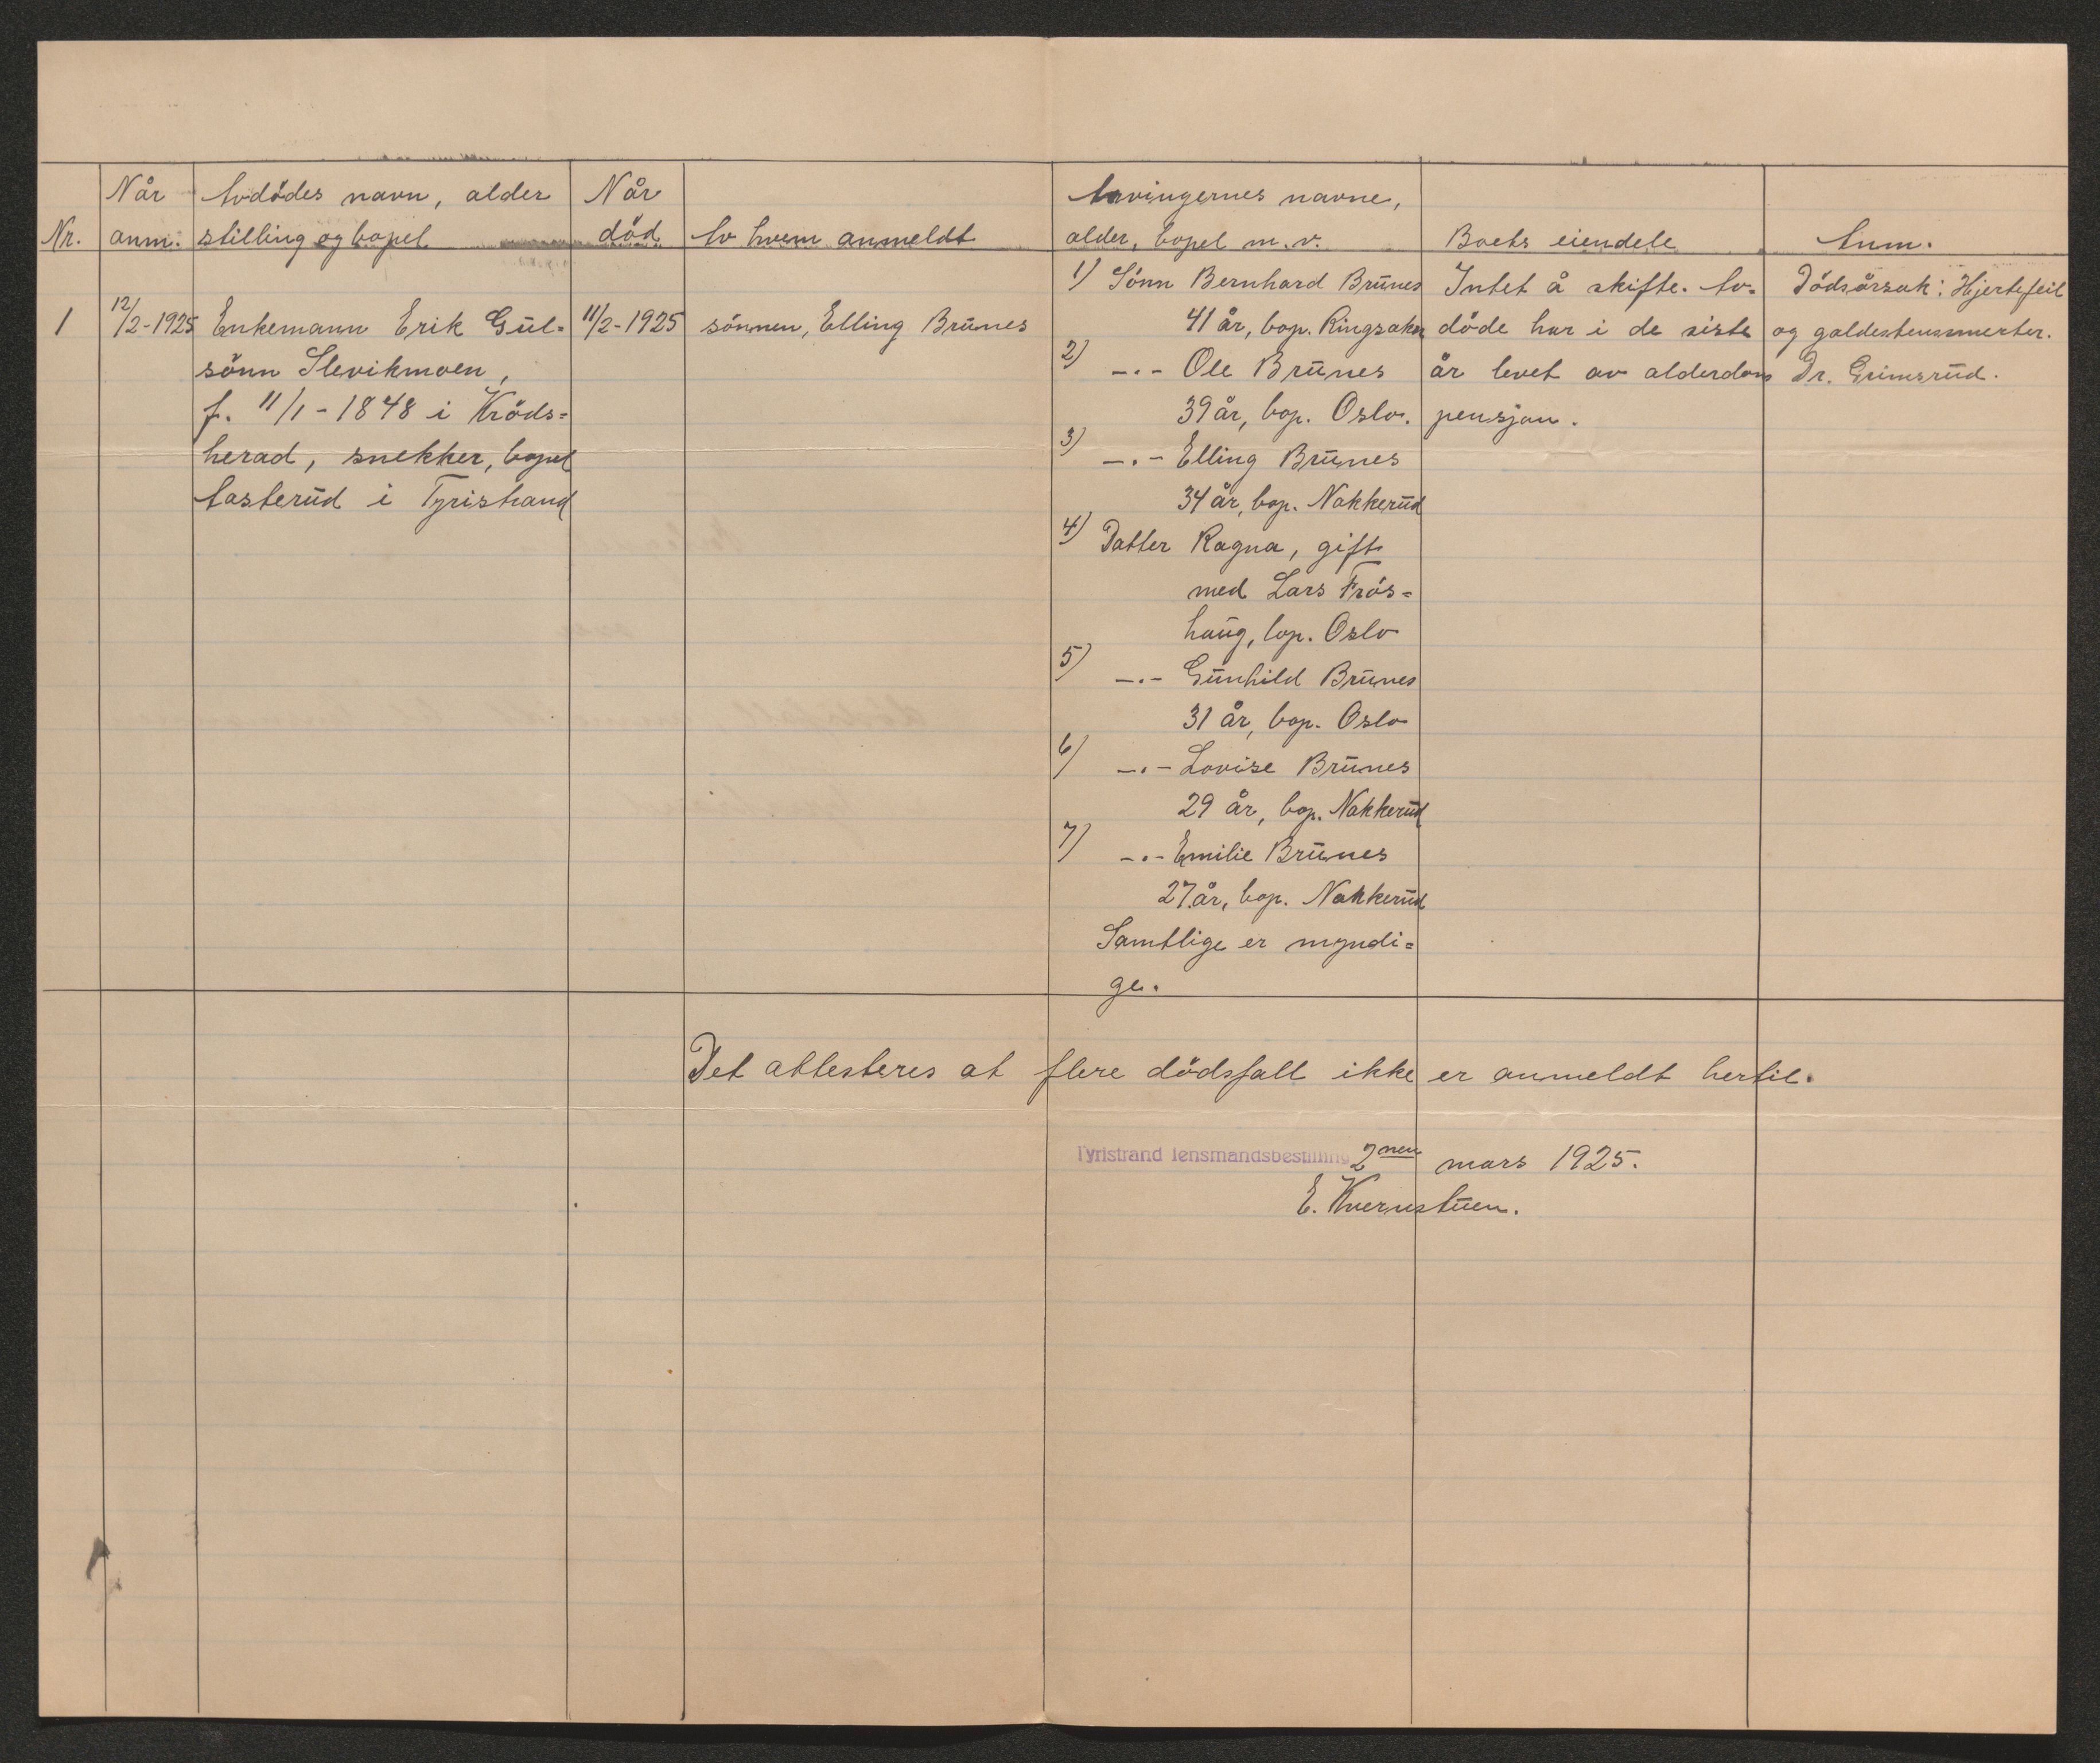 Nr.
Når
anm.
Avdödes navn, alder
stilling og bopel
Når
död
Av hvem anmeldt
Arvingernes navne,
alder, bopel m.v.
Boets eiendele
Anm.
1
12/2-1925
Enkemann Erik Gul=
sönn Slevikmoen,
f. 11/1-1848 i Kröds=
herad, snekker, bopel
Aasterud i Tyristrand
11/2-1925
sönnen, Elling Brunes
1) Sönn Bernhard Brunes
41 år, bop. Ringsaker
2) -.- Ole Brunes
39 år, bop. Oslo.
3) -.- Elling Brunes
34 år, bop. Nakkerud
4) Datter Ragna, gift
med Lars Frös=
haug, bop. Oslo
5) -.- Gunhild Brunes
31 år, bop. Oslo
6) -.- Lovise Brunes
29 år, bop. Nakkerud
7) -.- Emilie Brunes
27 år, bop. Nakkerud
Samtlige er myndi=
ge.
Intet å skifte. Av-
döde har i de siste
år levet av alderdoms
pensjon.
Dödsårsak: Hjertefeil
og galdestenssmerter.
Dr. Grimsrud.
Det attesteres at flere dödsfall ikke er anmeldt hertil.
Tyristrand lensmandsbestilling 2nen mars 1925.
E. Kvernstuen.